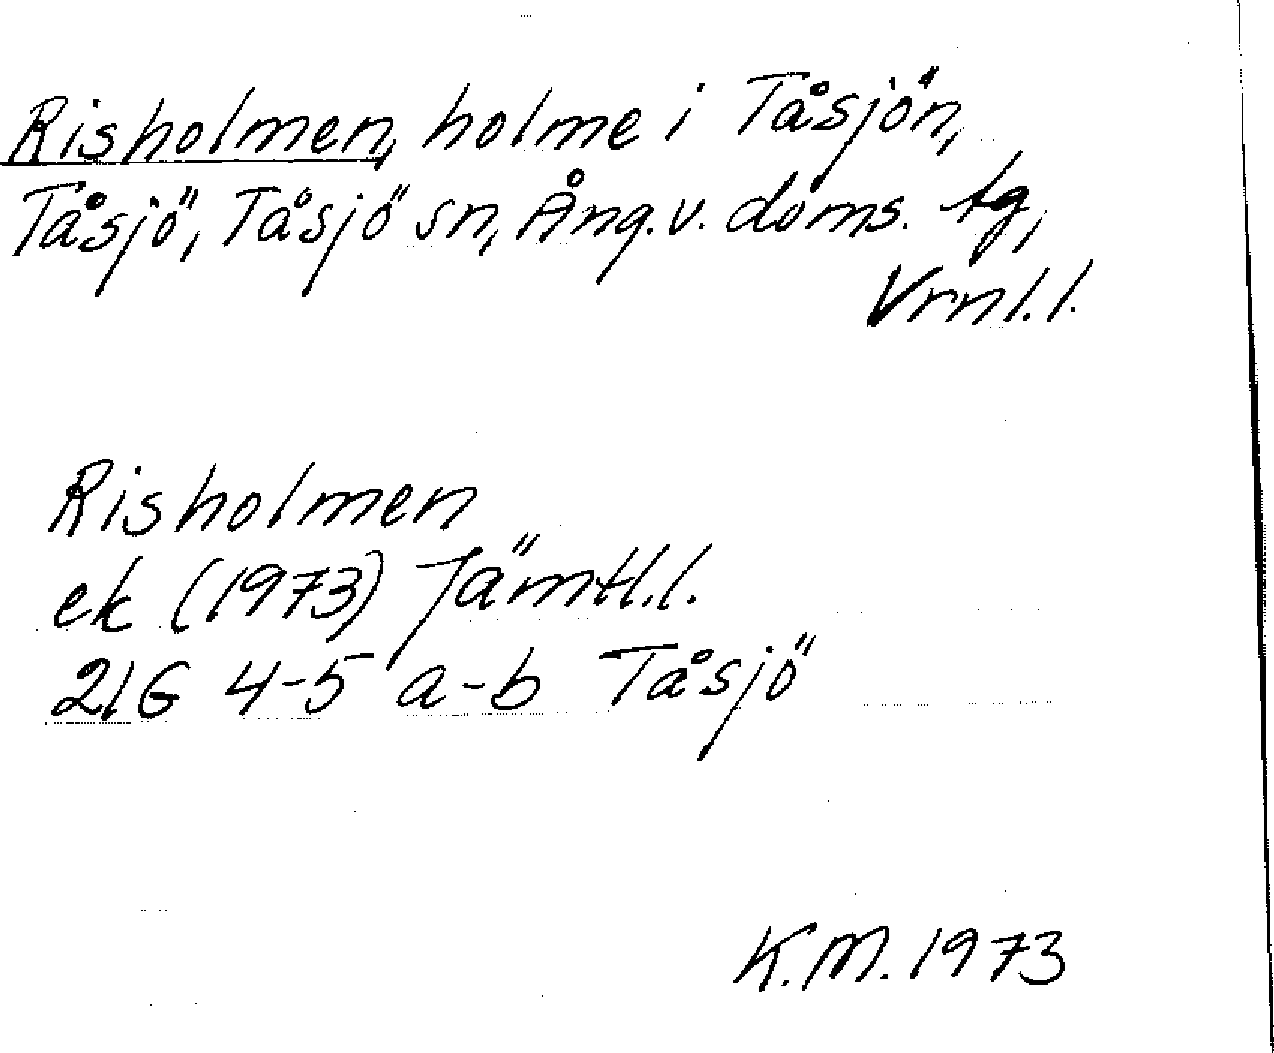 Risholmen, holme i Tåsjön,
Tåsjö, Tåsjö sn, Ång. v. doms. tg,
Vrnl.l.
Risholmen
ek (1973) Jämtl.l.
21G 4-5 a-b Tåsjö
K.M. 1973